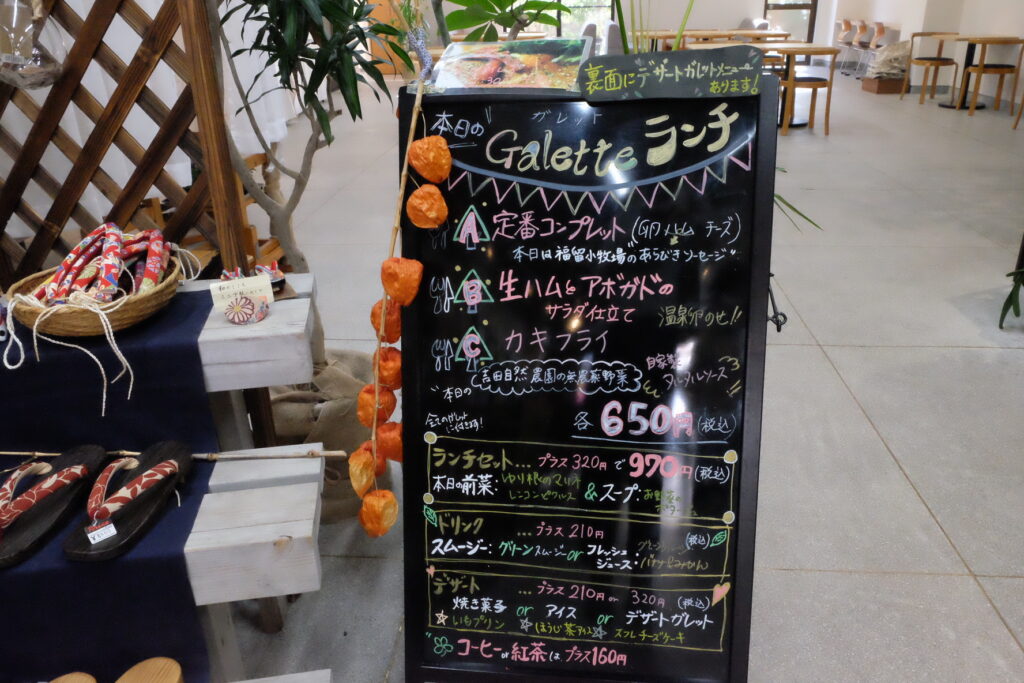 裏面にデザートガレットメニュー
あります!
ガレット
本日の
Galette ランチ
A 定番コンプレット(卵 ハム チーズ)
本日は福留小牧場の"あらびきソーセージ"
B 生ハムとアボガドの
サラダ仕立て 温泉卵のせ!!
C カキフライ
自家製
タルタルソース
"本日の 吉田自然農園の無農薬野菜
全てのガレット
に付きます!
各 650円(税込)
ランチセット...プラス320円で970円(税込)
本日の前菜:ゆり根のマリネ
レンコンピクルス & スープ:お野菜の
ドリンク ...プラス210円 (税込)
スムージー:グリーンスムージー or フレッシュ
ジュース:
デザート ...プラス210円 or 320円 (税込)
焼き菓子 or アイス or デザートガレット
いもプリン ほうじ茶アイス スフレチーズケーキ
コーヒー or 紅茶は プラス160円